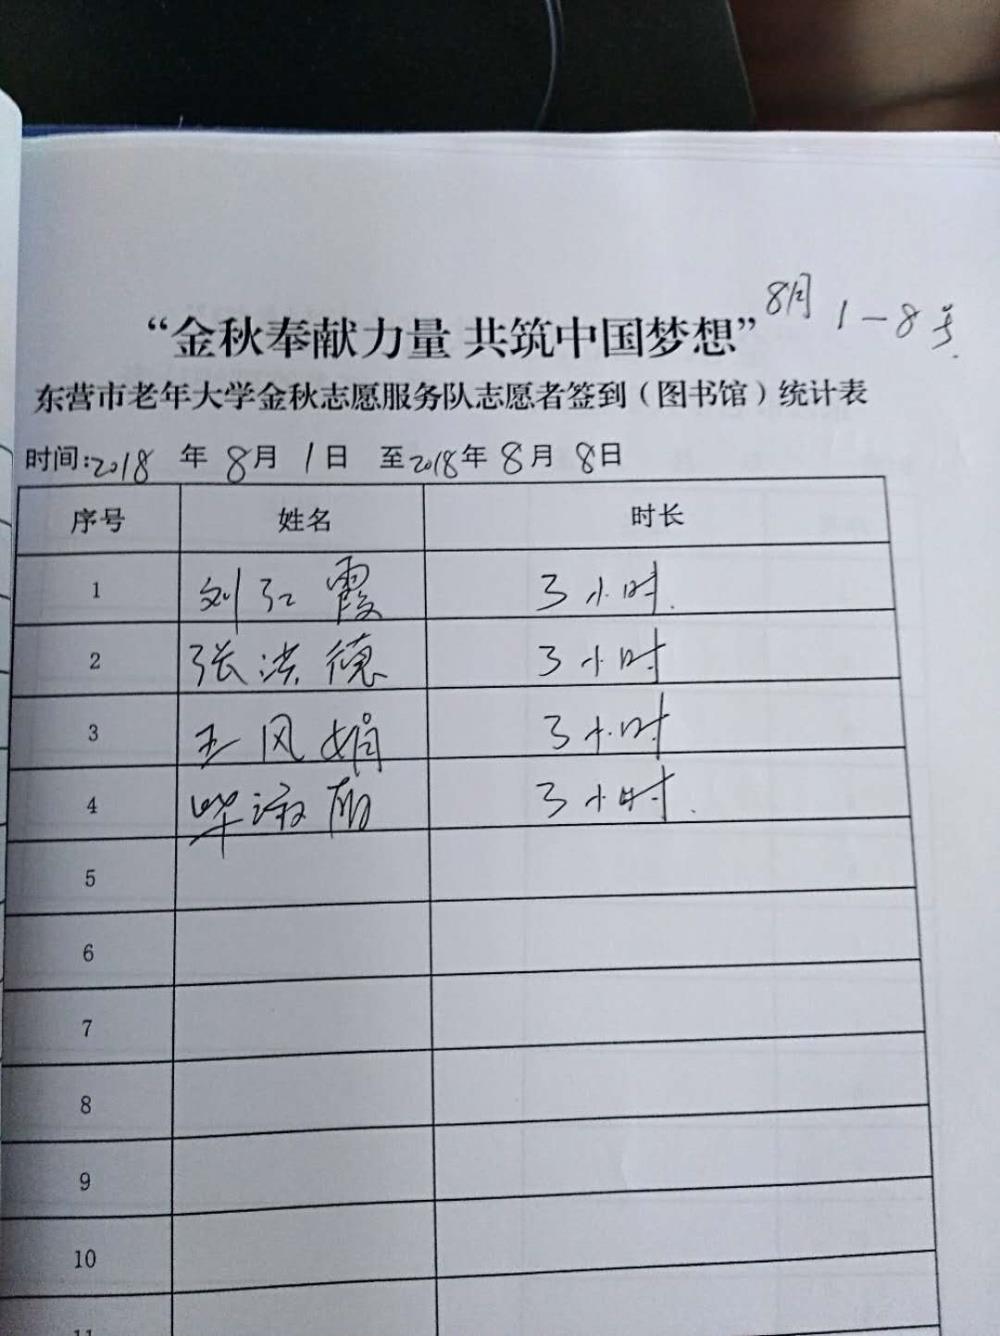 8月 1-8号.
“金秋奉献力量 共筑中国梦想”
东营市老年大学金秋志愿服务队志愿者签到（图书馆）统计表
时间:2018 年 8月 1日 至2018年 8月 8日
序号 姓名 时长
1 刘红霞 3小时.
2 张洪德 3小时
3 王风娟 3小时
4 毕淑 3小时.
5
6
7
8
9
10
11